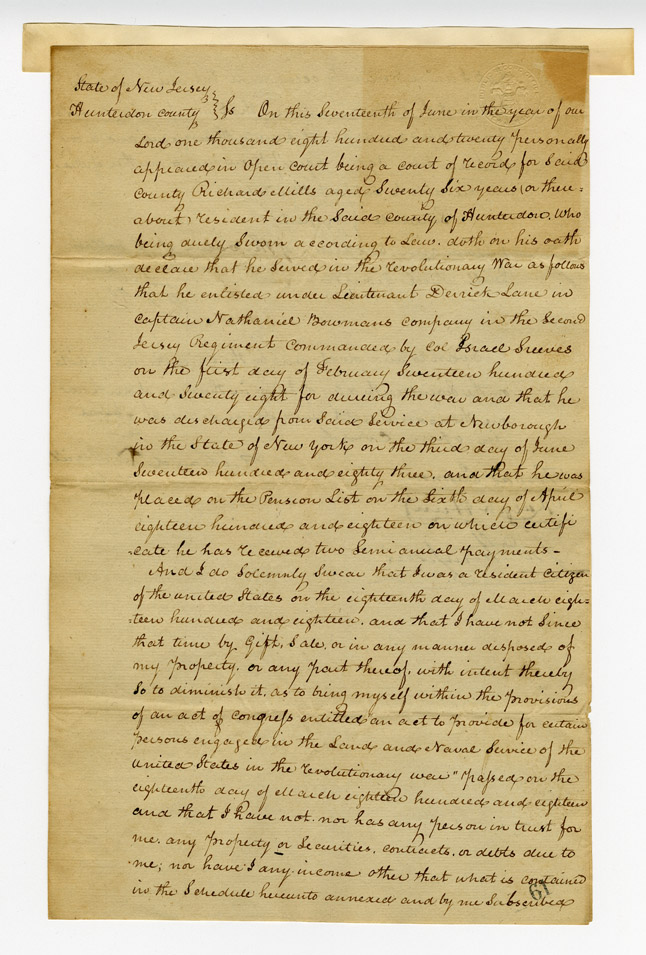 State of New Jersey
Hunterdon County } Ss On this Seventeenth of June in the year of our
Lord one thousand eight hundred and twenty Personally
appeared in Open Court being a court of record for Said
County Richard Mills aged Seventy Six years (or there=
about) resident in the Said County of Hunterdon, Who
being duely Sworn according to Law. doth on his oath
declare that he Served in the revolutionary War as follows
that he enlisted under Lieutenant Derrick Lane in
Captain Nathaniel Bowmans company in the Second
Jersey Regiment Commanded by Col Israel Sreeves
on the first day of February Seventeen hundred
and Seventy eight for dureing the war and that he
was discharged from Said Service at Newborough
in the State of New York on the third day of June
Seventeen hundred and eighty three. and that he was
placed on the Pension List on the Sixth day of April
eighteen hundred and eighteen on which certifi
cate he has received two Semi anual Payments -
And I do Solemnly Swear that I was a resident Citizen
of the united States on the eighteenth day of March eigh=
teen hundred and eighteen. and that I have not Since
that time by Gift, Sale, or in any manner disposed of
my Property, or any Part thereof, with intent thereby
So to diminish it, as to bring myself within the Provisions
of an act of Congress entitled an act to Provide for certain
Persons engaged in the Land and Naval Service of the
United States in the revolutionary war" Passed on the
eighteenth day of March eighteen hundred and eighteen
and that I have not. nor has any Person in trust for
me. any Property or Securities, contracts, or debts due to
me; nor have I any income other that what is contained
in the Schedule hereunto annexed and by me Subscribed
61